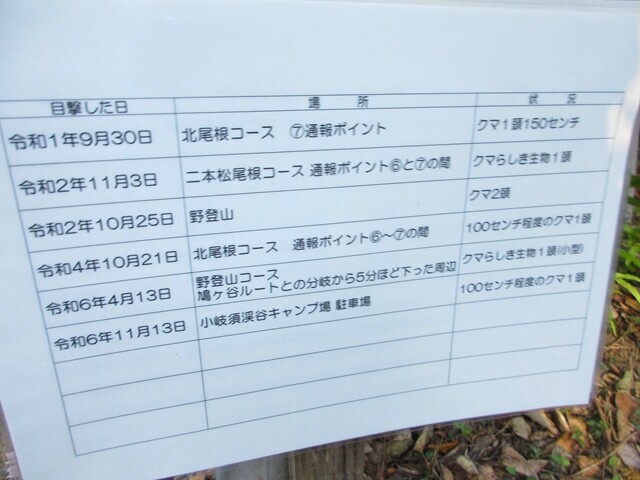 目撃した日 場所 状況
令和1年9月30日 北尾根コース ⑦通報ポイント クマ1頭150センチ
令和2年11月3日 二本松尾根コース 通報ポイント⑥と⑦の間 クマらしき生物1頭
令和2年10月25日 野登山 クマ2頭
令和4年10月21日 北尾根コース 通報ポイント⑥～⑦の間 100センチ程度のクマ1頭
令和6年4月13日 野登山コース
鳩ヶ谷ルートとの分岐から5分ほど下った周辺 クマらしき生物1頭(小型)
令和6年11月13日 小岐須渓谷キャンプ場 駐車場 100センチ程度のクマ1頭